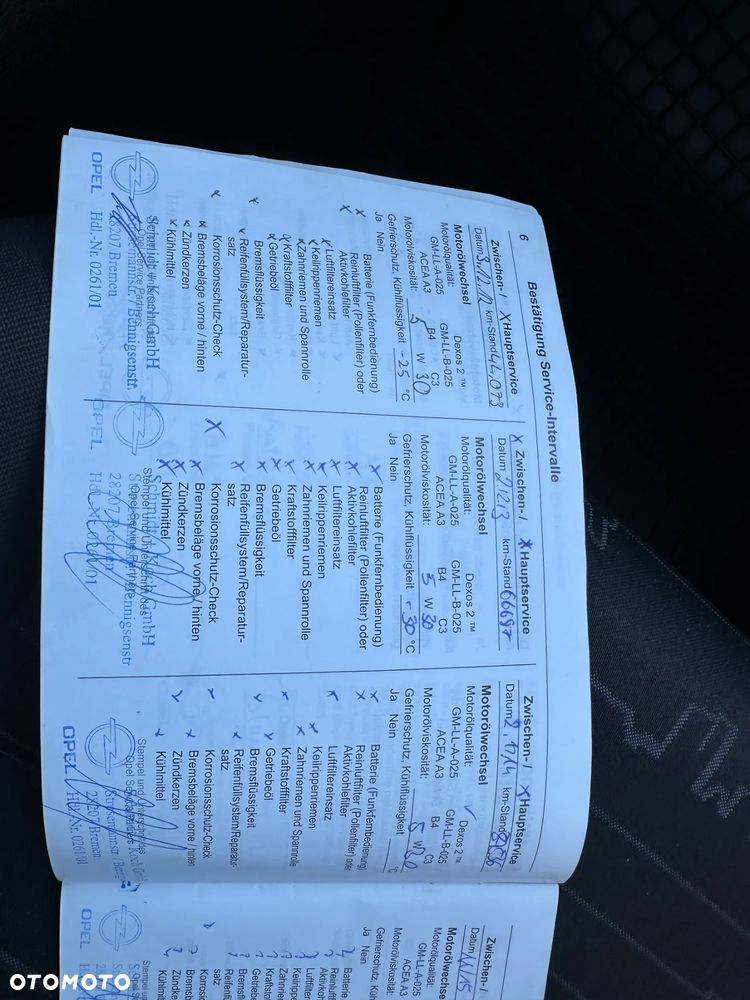 6 Bestätigung Service-Intervalle
Zwischen- / X Hauptservice
Datum 3.12.12 km-Stand 44.073
Motorölwechsel
Motorölqualität: Dexos 2 ™
GM-LL-A-025 GM-LL-B-025
ACEA A3 B4 C3
Motorölviskosität: 5 W 30
Gefrierschutz, Kühlflüssigkeit -25 °C
Ja Nein
x Batterie (Funkfernbedienung)
x Reinluftfilter (Pollenfilter) oder
Aktivkohlefilter
x Luftfiltereinsatz
x Keilrippenriemen
x Zahnriemen und Spannrolle
x Kraftstofffilter
x Getriebeöl
x Bremsflüssigkeit
x Reifenfüllsystem/Reparatur-
satz
x Korrosionsschutz-Check
x Bremsbeläge vorne / hinten
x Zündkerzen
x Kühlmittel
Opel Service Partner
Schmidt + Koch GmbH
Stresemannstr./ Bennigsenstr.
28207 Bremen
OPEL Hdl.-Nr. 0261/01
X Zwischen- / X Hauptservice
Datum km-Stand 66697
Motorölwechsel
Motorölqualität: Dexos 2 ™
GM-LL-A-025 GM-LL-B-025
ACEA A3 B4 C3
Motorölviskosität: 5 W 30
Gefrierschutz, Kühlflüssigkeit -30 °C
Ja Nein
x Batterie (Funkfernbedienung)
x Reinluftfilter (Pollenfilter) oder
Aktivkohlefilter
x Luftfiltereinsatz
x Keilrippenriemen
x Zahnriemen und Spannrolle
x Kraftstofffilter
x Getriebeöl
x Bremsflüssigkeit
x Reifenfüllsystem/Reparatur-
satz
X Korrosionsschutz-Check
x Bremsbeläge vorne / hinten
x Zündkerzen
x Kühlmittel
Stempel und Unterschrift des
Opel Service Partners
28207 Bremen
OPEL
Zwischen- / X Hauptservice
Datum km-Stand
Motorölwechsel
Motorölqualität: ✓ Dexos 2 ™
GM-LL-A-025 GM-LL-B-025
ACEA A3 B4 C3
Motorölviskosität: 5 W 30
Gefrierschutz, Kühlflüssigkeit °C
Ja Nein
x Batterie (Funkfernbedienung)
x Reinluftfilter (Pollenfilter) oder
Aktivkohlefilter
x Luftfiltereinsatz
x Keilrippenriemen
x Zahnriemen und Spannrolle
x Kraftstofffilter
x Getriebeöl
x Bremsflüssigkeit
x Reifenfüllsystem/Reparatur-
satz
Korrosionsschutz-Check
x Bremsbeläge vorne / hinten
Zündkerzen
x Kühlmittel
Stempel und Unterschrift des
Opel Service Partners
Stresemannstr./
28207 Bremen
OPEL Hdl.-Nr. 0261/01
Zwischen- /
Datum
Motorölwechsel
Motorölqualität:
GM-LL-A-025
ACEA A3
Motorölviskosität:
Gefrierschutz, Kühl
Ja Nein
Batterie
Reinluf
Aktivkohl
Luftfilte
Keilripp
Zahnrie
Kraftst
Getriebe
Bremsfl
Reifenfü
satz
Korros
Bremsb
Zündke
Kühlmitt
Stempel
Opel Se
OPEL
OTOMOTO